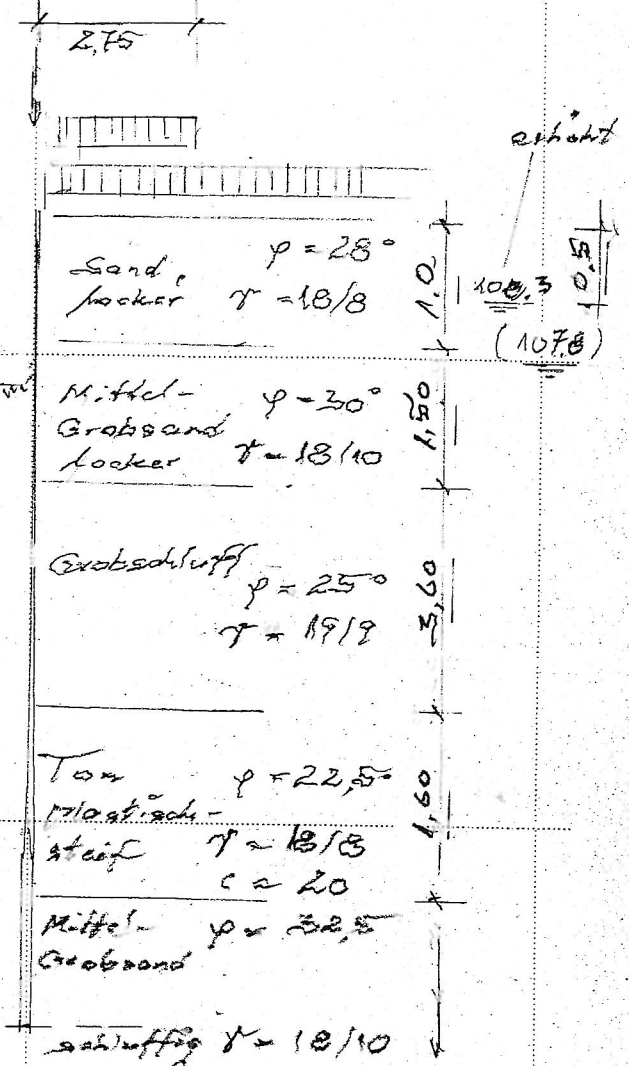 2,75
erhöht
Sand, φ = 28°
locker γ = 18/8
1.0
108.3
0.5
(107.8)
Mittel- φ = 30°
Grobsand
locker γ = 18/10
1,50
Grobschluff
φ = 25°
γ = 19/9
3,60
Ton φ = 22,5°
plastisch-
steif γ = 18/8
c = 20
1,60
Mittel- φ = 32,5
Grobsand
schluffig γ = 18/10